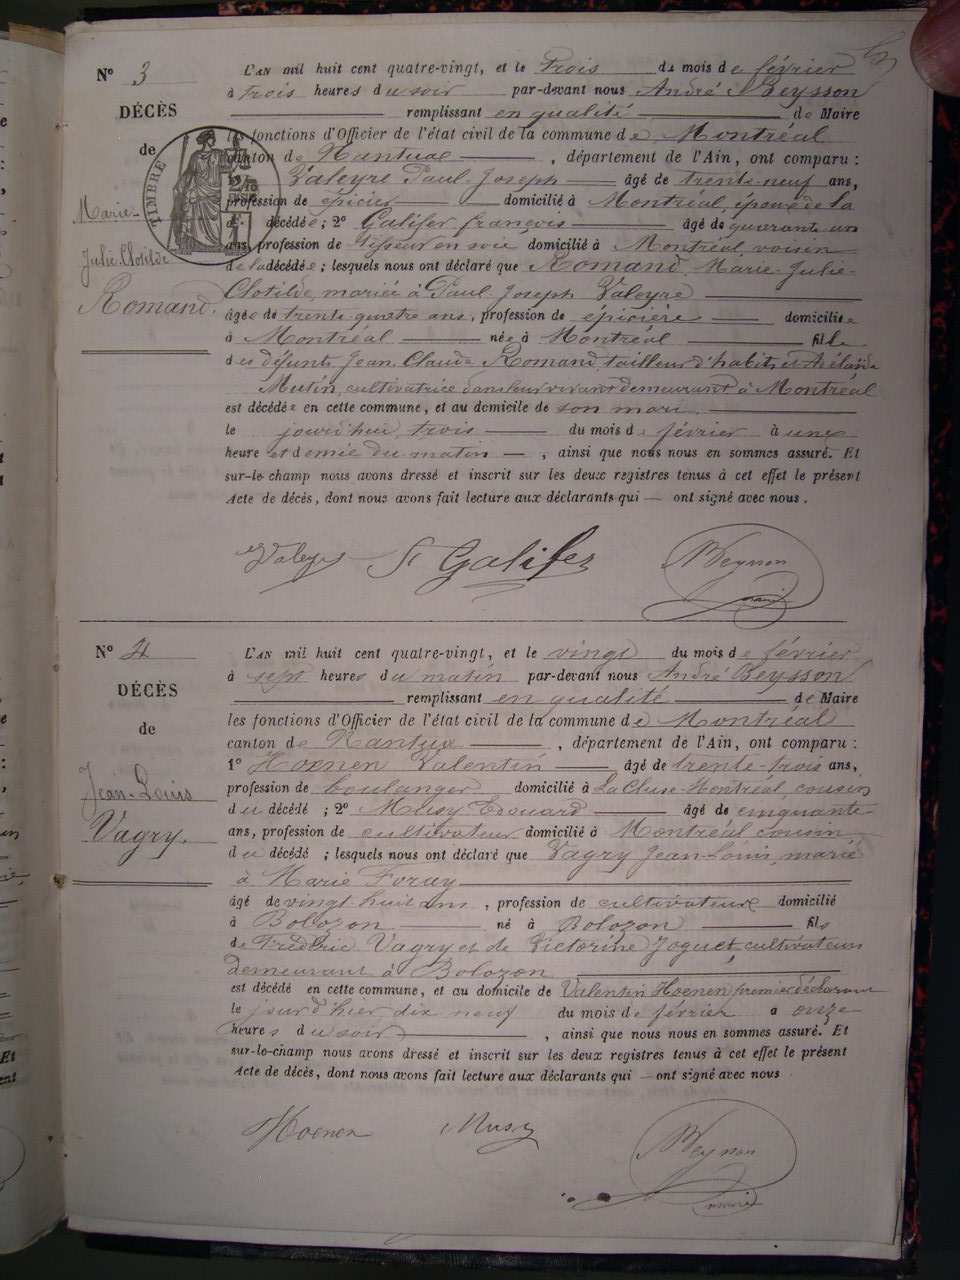 N° 3
DÉCÈS
de
Marie-
Julie Clotilde
Romand.
TIMBRE
L'AN mil huit cent quatre-vingt, et le Trois du mois de février
à trois heures du soir par-devant nous André Beysson
remplissant en qualité de Maire
les fonctions d'Officier de l'état civil de la commune de Montréal
canton de Nantua, département de l'Ain, ont comparu :
1° Valeyre Paul Joseph âgé de trente-neuf ans,
profession de épicier domicilié à Montréal, époux de la
décédée; 2° Galifer françois âgé de quarante un
ans, profession de Tisseur en soie domicilié à Montréal, voisin
de la décédée; lesquels nous ont déclaré que Romand, Marie-Julie-
Clotilde, mariée à Paul Joseph Valeyre
âgée de trente quatre ans, profession de epicière domiciliée
à Montréal née à Montréal fille
des défunts Jean Claude Romand, tailleur d'habits et Adélaïde
Mutin, cultivatrice dans leur vivant demeurant à Montréal
est décédée en cette commune, et au domicile de son mari
le jourd'hui, trois du mois de février à une
heure et demie du matin, ainsi que nous nous en sommes assuré. Et
sur-le-champ nous avons dressé et inscrit sur les deux registres tenus à cet effet le présent
Acte de décès, dont nous avons fait lecture aux déclarants qui — ont signé avec nous.
Valeyre Galifer Beysson
maire
N° 4
DÉCÈS
de
Jean-Louis
Vagry.
L'AN mil huit cent quatre-vingt, et le vingt du mois de février
à sept heures du matin par-devant nous André Beysson
remplissant en qualité de Maire
les fonctions d'Officier de l'état civil de la commune de Montréal
canton de Nantua, département de l'Ain, ont comparu :
1° Hoenen Valentin âgé de trente-trois ans,
profession de boulanger domicilié à La Cluse-Montréal, cousin
du décédé ; 2° Musy Edouard âgé de cinquante
ans, profession de cultivateur domicilié à Montréal cousin
du décédé ; lesquels nous ont déclaré que Vagry Jean-Louis, marié
à Marie Foray
âgé de vingt huit ans, profession de cultivateur domicilié
à Bolozon né à Bolozon fils
de Frédéric Vagry et de Victorine Joguet, cultivateurs
demeurant à Bolozon
est décédé en cette commune, et au domicile de Valentin Hoenen premier déclarant
le jour d'hier, dix neuf du mois de février à onze
heures du soir, ainsi que nous nous en sommes assuré. Et
sur-le-champ nous avons dressé et inscrit sur les deux registres tenus à cet effet le présent
Acte de décès, dont nous avons fait lecture aux déclarants qui — ont signé avec nous
Hoenen Musy Beysson
maire